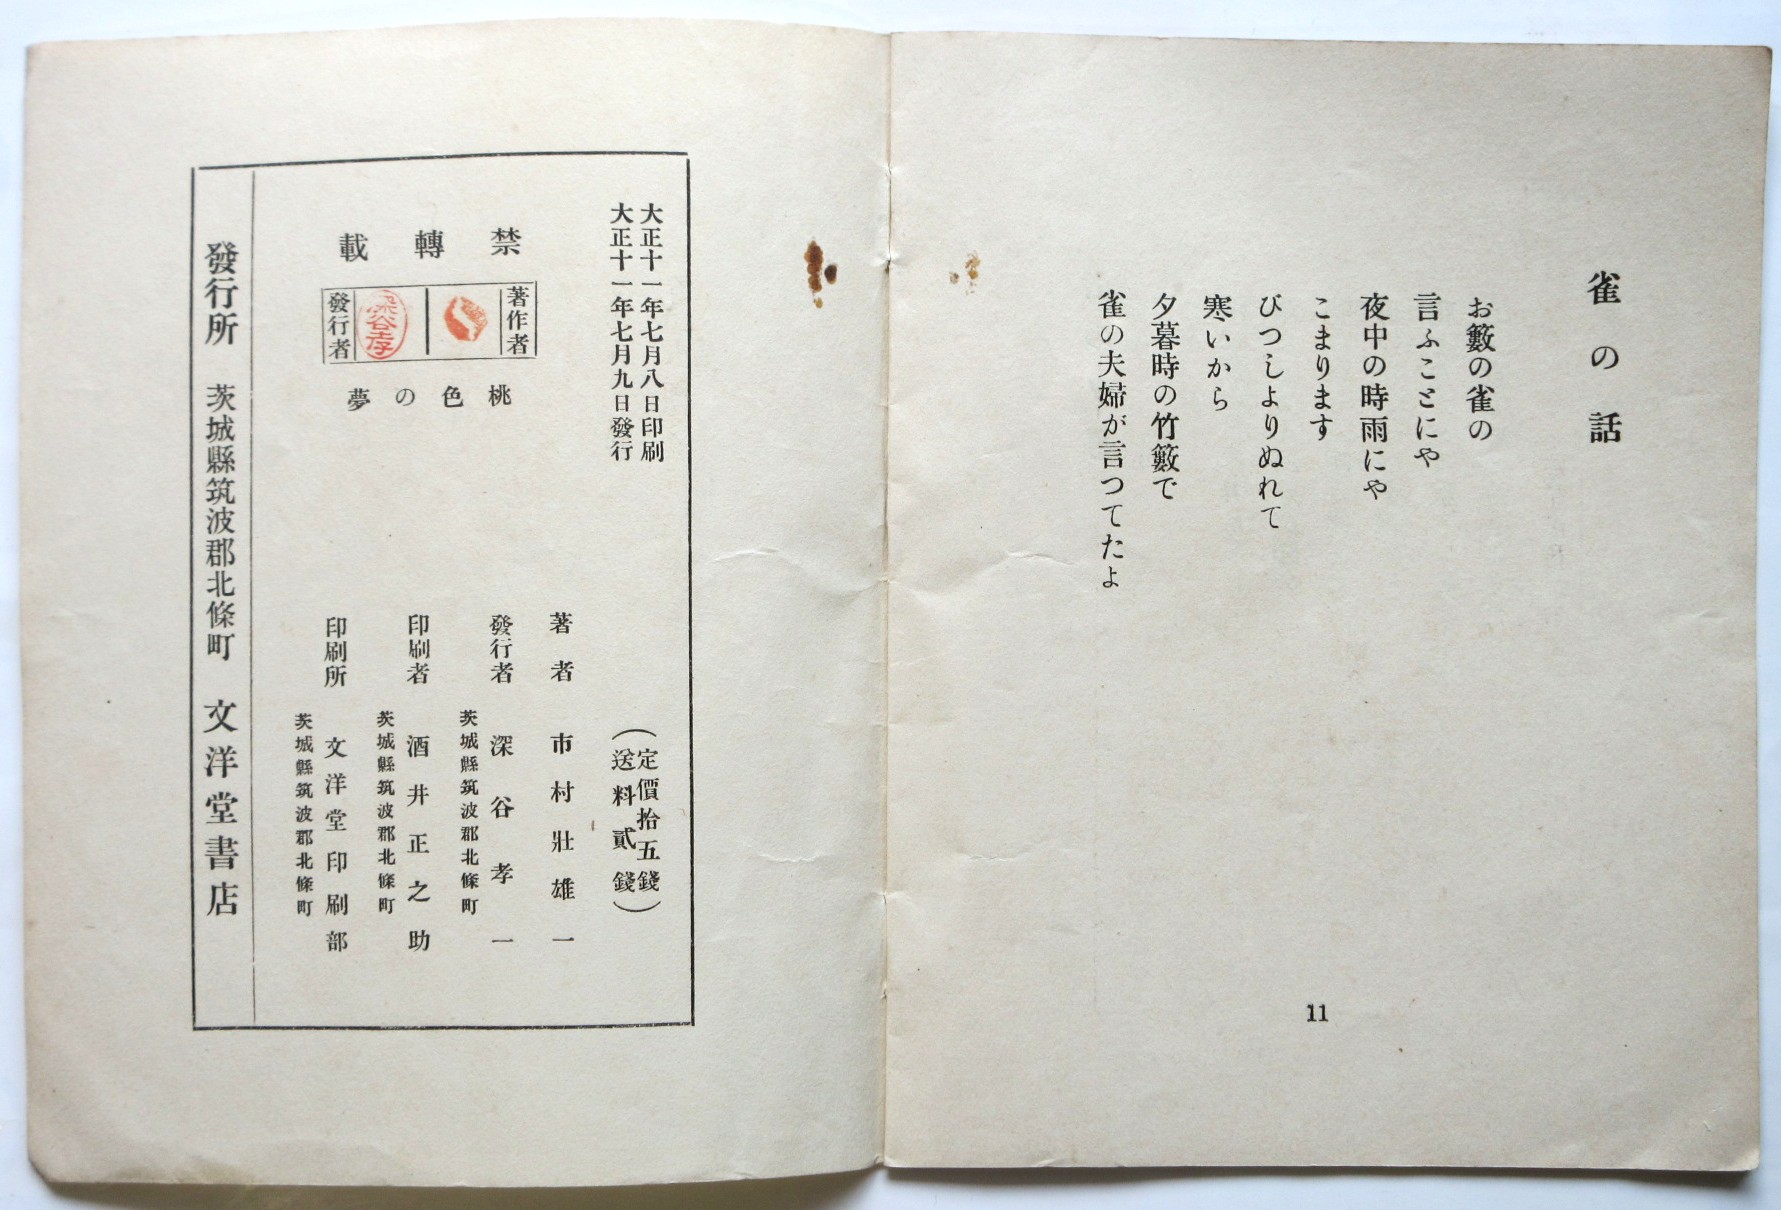 雀の話
お籔の雀の
言ふことにや
夜中の時雨にや
こまります
びつしよりぬれて
寒いから
夕暮時の竹籔で
雀の夫婦が言つてたよ
11
大正十一年七月八日印刷
大正十一年七月九日發行
(定價拾五錢)
(送料貳錢)
禁轉載
著作者
發行者
深谷孝
桃色の夢
著者 市村壯雄一
發行者 深谷孝一
茨城縣筑波郡北條町
印刷者 酒井正之助
茨城縣筑波郡北條町
印刷所 文洋堂印刷部
茨城縣筑波郡北條町
發行所 茨城縣筑波郡北條町 文洋堂書店